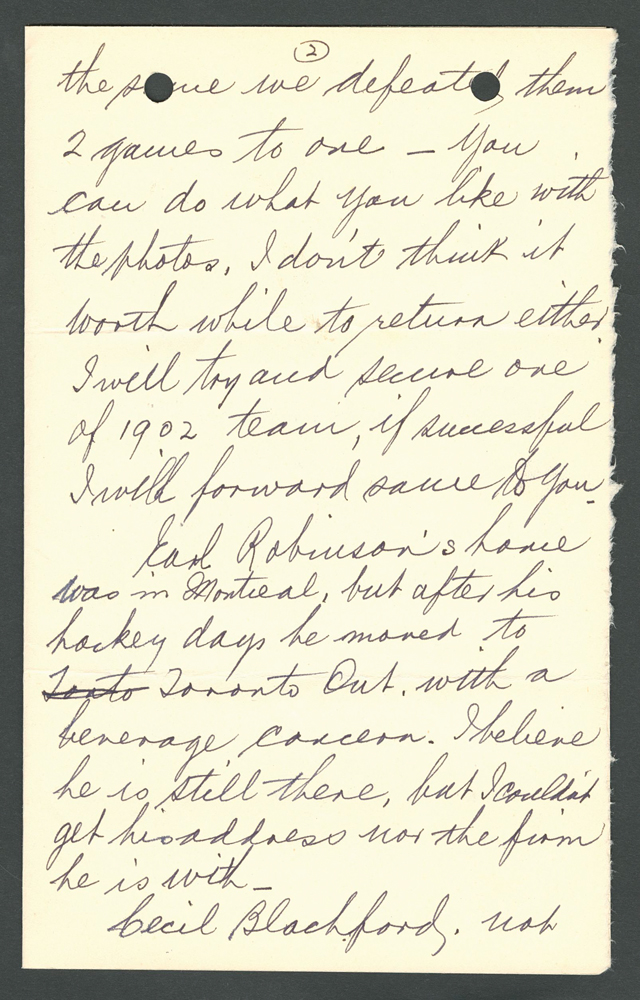 2
the same we defeated them
2 games to one – You
can do what you like with
the photos, I don't think it
worth while to return either
I will try and secure one
of 1902 team, if successful
I will forward same to you
Earl Robinson's home
was in Montreal, but after his
hockey days he moved to
Toronto Ont. with a
beverage concern. I believe
he is still there, but I couldn't
get his address nor the firm
he is with –
Cecil Blachford, not